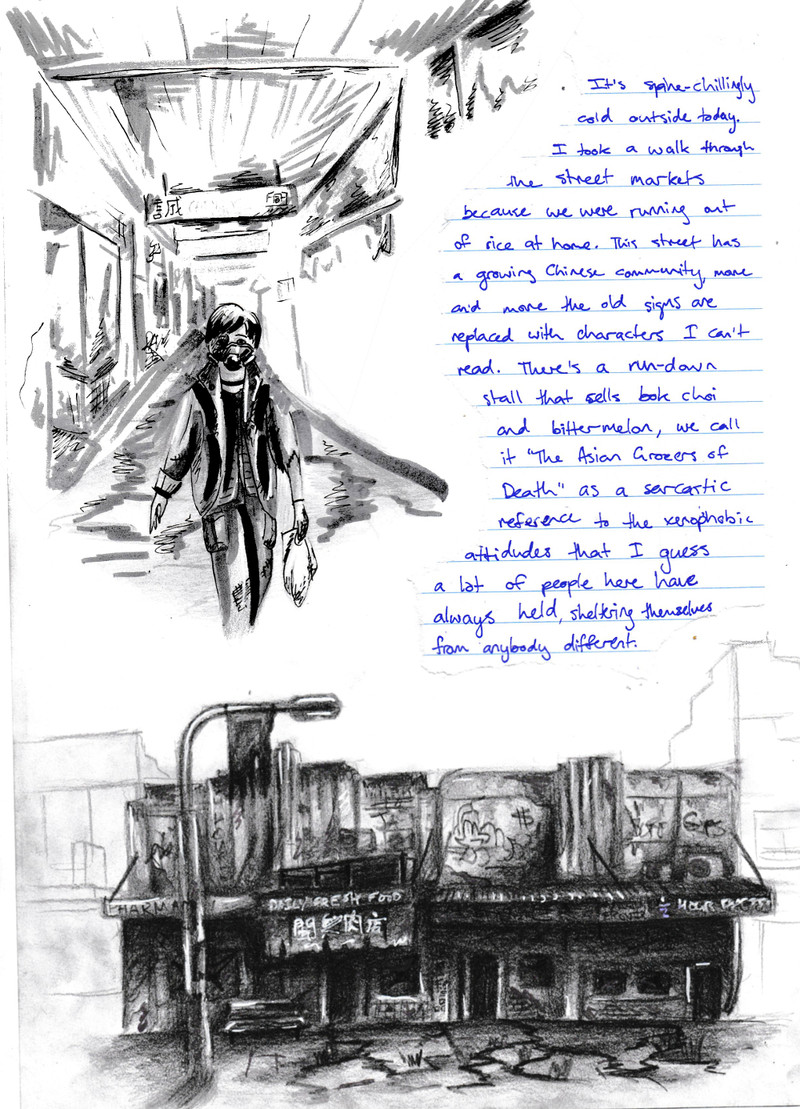 誠
It's spine-chillingly
cold outside today.
I took a walk through
the street markets
because we were running out
of rice at home. This street has
a growing Chinese community, more
and more the old signs are
replaced with characters I can't
read. There's a run-down
stall that sells bok choi
and bittermelon, we call
it "The Asian Grocers of
Death" as a sarcastic
reference to the xenophobic
attidudes that I guess
a lot of people here have
always held, sheltring themselves
from anybody different.
PHARMA
DAILY FRESH FOOD
肉店
½ HOUR PHOTOS